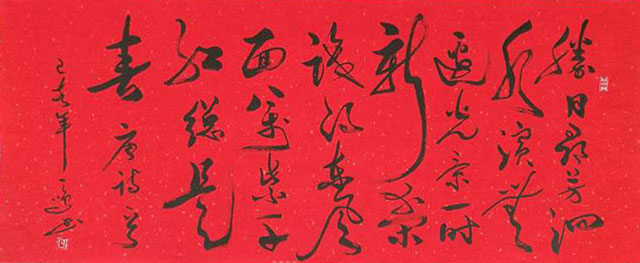 勝日尋芳泗
水濱無
邊光景一时
新等閑
識得東風
面萬紫千
紅總是
春 唐詩
己亥年 書